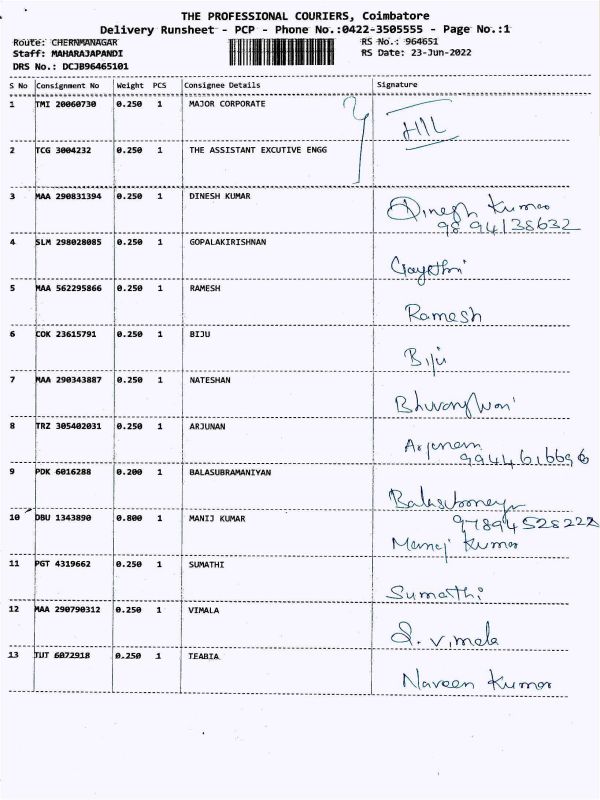 THE PROFESSIONAL COURIERS, Coimbatore
Delivery Runsheet - PCP - Phone No.:0422-3505555 - Page No.:1
Route: CHERNMANAGAR RS No.: 964651
Staff: MAHARAJAPANDI RS Date: 23-Jun-2022
DRS No.: DCJB96465101
S No Consignment No Weight PCS Consignee Details Signature
1 TMI 20060730 0.250 1 MAJOR CORPORATE
2 TCG 3004232 0.250 1 THE ASSISTANT EXCUTIVE ENGG
3 MAA 290831394 0.250 1 DINESH KUMAR Dinesh Kumar
9894138632
4 SLM 298028085 0.250 1 GOPALAKIRISHNAN Gayathri
5 MAA 562295866 0.250 1 RAMESH Ramesh
6 COK 23615791 0.250 1 BIJU Biju
7 MAA 290343887 0.250 1 NATESHAN
8 TRZ 305402031 0.250 1 ARJUNAN
9944616696
9 PDK 6016288 0.200 1 BALASUBRAMANIYAN
10 DBU 1343890 0.800 1 MANIJ KUMAR 9789452822
Manoj Kumar
11 PGT 4319662 0.250 1 SUMATHI Sumathi
12 MAA 290790312 0.250 1 VIMALA S. vimala
13 TUT 6072918 0.250 1 TEABIA Naveen Kumar